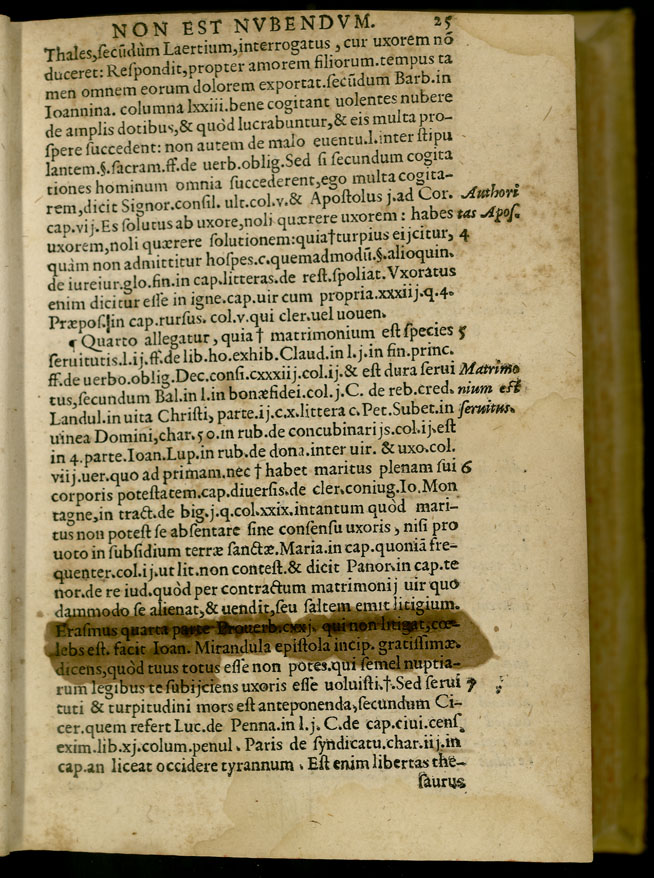 NON EST NVBENDVM. 25
Thales,ſecūdùm Laertium,interrogatus , cur uxorem nō
duceret: Reſpondit,propter amorem filiorum.tempus ta
men omnem eorum dolorem exportat.ſecūdum Barb.in
Ioannina. columna lxxiii.bene cogitant uolentes nubere
de amplis dotibus,& quòd lucrabuntur,& eis multa pro-
ſpere ſuccedent: non autem de malo euentu.l.inter ſtipu
lantem.§.ſacram.ff.de uerb.oblig.Sed ſi ſecundum cogita
tiones hominum omnia ſuccederent,ego multa cogita-
rem,dicit Signor.conſil. ult.col.v.& Apoſtolus j.ad Cor. Authori
cap.vij.Es ſolutus ab uxore,noli quærere uxorem : habes tas Apoſ.
uxorem,noli quærere ſolutionem:quia†turpius eijcitur, 4
quàm non admittitur hoſpes.c.quemadmodū.§.alioquin.
de iureiur.glo.fin.in cap.litteras.de reſt.ſpoliat.Vxoratus
enim dicitur eſſe in igne.cap.uir cum propria.xxxiij.q.4.
Præpoſ.in cap.rurſus. col.v.qui cler.uel uouen.
¶ Quarto allegatur, quia† matrimonium eſt ſpecies 5
ſeruitutis.l.ij.ff.de lib.ho.exhib.Claud.in l.j.in fin.princ.
ff.de uerbo.oblig.Dec.conſi.cxxxiij.col.ij.& eſt dura ſerui Matrimo
tus,ſecundum Bal.in l.in bonæfidei.col.j.C. de reb.cred. nium eſt
Landul.in uita Chriſti, parte.ij.c.x.littera c. Pet.Subet.in ſeruitus.
uinea Domini,char.50.in rub.de concubinarijs.col.ij.eſt
in 4.parte.Ioan.Lup.in rub.de dona.inter uir. & uxo.col.
viij.uer.quo ad primam.nec † habet maritus plenam ſui 6
corporis poteſtatem.cap.diuerſis.de cler.coniug.Io.Mon
tagne,in tract.de big.j.q.col.xxix.intantum quòd mari-
tus non poteſt ſe abſentare ſine conſenſu uxoris , niſi pro
uoto in ſubſidium terræ ſanctæ.Maria.in cap.quoniā fre-
quenter.col.ij.ut lit.non conteſt.& dicit Panor.in cap.te
nor.de re iud.quòd per contractum matrimonij uir quo
dammodo ſe alienat,& uendit,ſeu ſaltem emit litigium.
Eraſmus quarta parte Prouerb.cxxj. qui non litigat,cœ-
lebs eſt. facit Ioan. Mirandula epiſtola incip. gratiſſimæ.
dicens,quòd tuus totus eſſe non potes.qui ſemel nuptia-
rum legibus te ſubijciens uxoris eſſe uoluiſti.†.Sed ſerui 7
tuti & turpitudini mors eſt anteponenda,ſecundum Ci-
cer.quem refert Luc.de Penna.in l.j. C.de cap.ciui.cenſ.
exim.lib.xj.colum.penul . Paris de ſyndicatu.char.iij.in
cap.an liceat occidere tyrannum . Eſt enim libertas the-
ſaurus